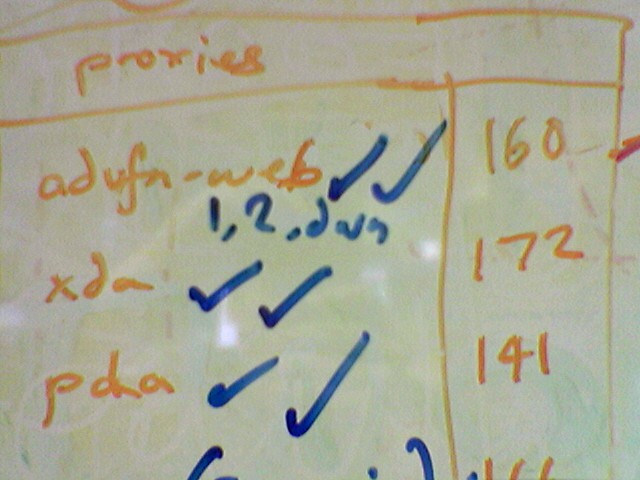 proxies
advfn-web ✓✓ 160
1, 2, dvn
xda ✓✓ 172
pda ✓✓ 141